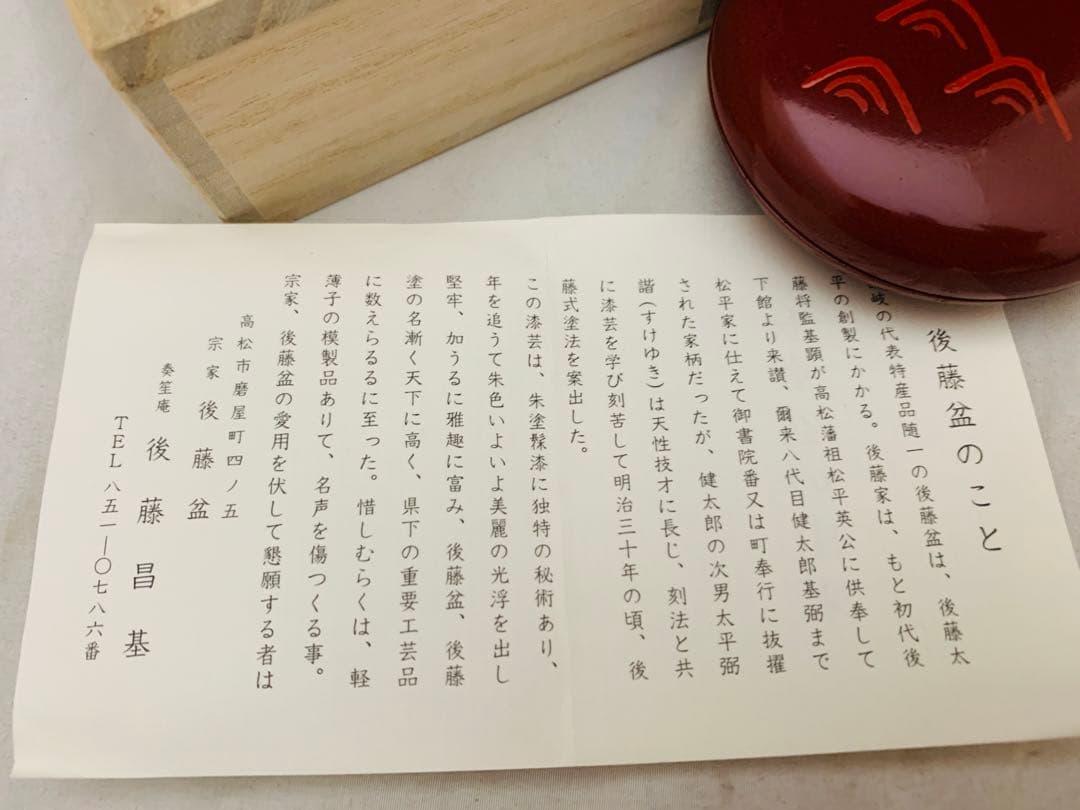 後藤盆のこと
岐の代表特産品随一の後藤盆は、後藤太
平の創製にかかる。後藤家は、もと初代後
藤将監基顕が高松藩祖松平英公に供奉して
下館より来讃、爾来八代目健太郎基弼まで
松平家に仕えて御書院番又は町奉行に抜擢
された家柄だったが、健太郎の次男太平弼
諧(すけゆき)は天性技才に長じ、刻法と共
に漆芸を学び刻苦して明治三十年の頃、後
藤式塗法を案出した。
この漆芸は、朱塗髹漆に独特の秘術あり、
年を追うて朱色いよいよ美麗の光浮を出し
堅牢、加うるに雅趣に富み、後藤盆、後藤
塗の名漸く天下に高く、県下の重要工芸品
に数えらるるに至った。惜しむらくは、軽
薄子の模製品ありて、名声を傷つくる事。
宗家、後藤盆の愛用を伏して懇願する者は
高松市磨屋町四ノ五
宗家 後藤盆
奏笙庵 後藤昌基
TEL 八五一―〇七八六番